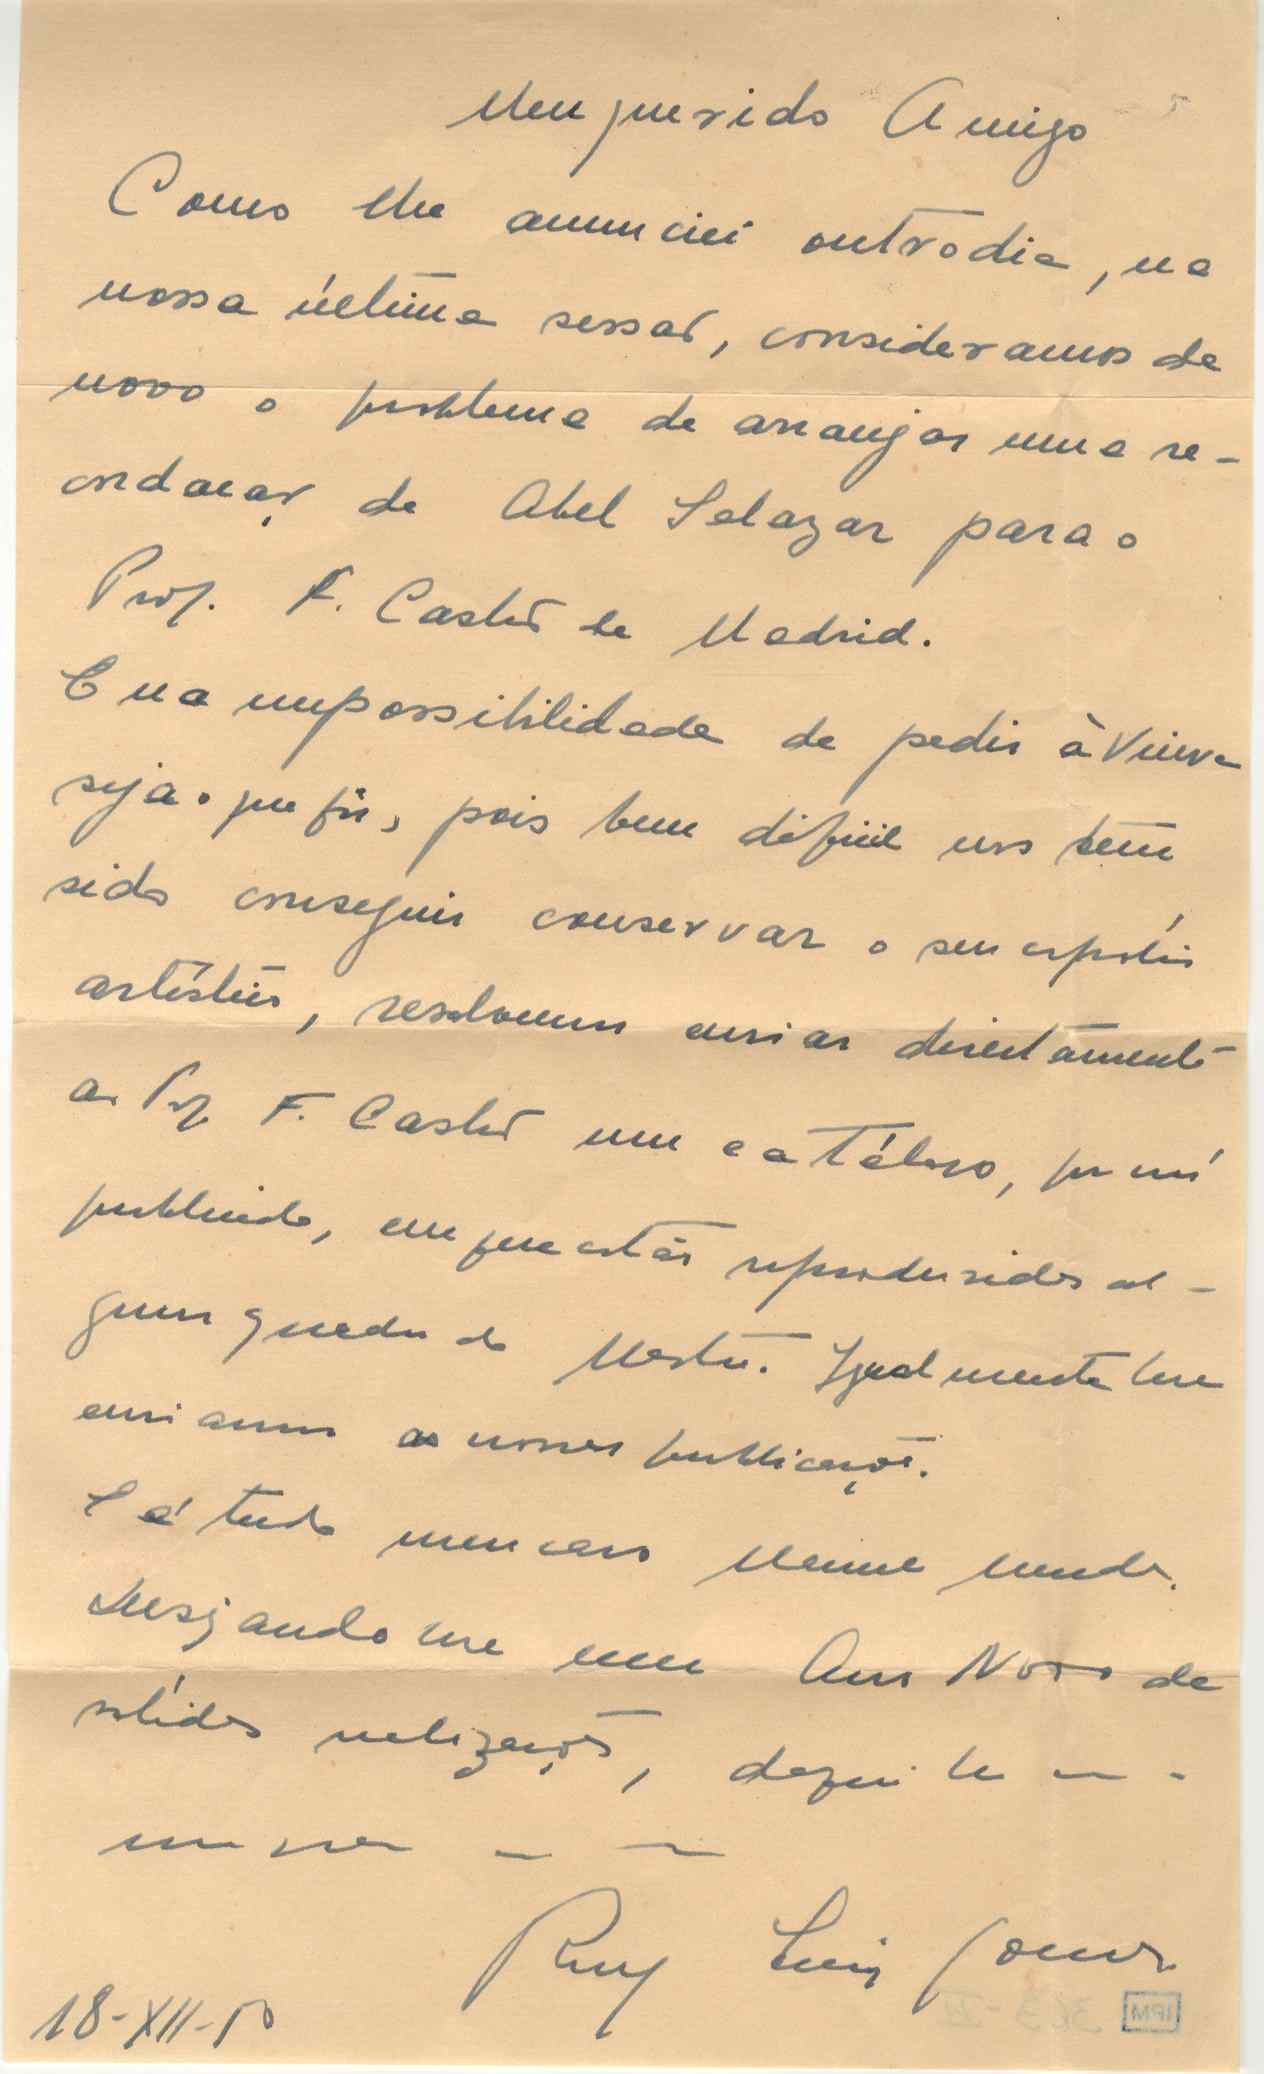 Meu querido Amigo
Como lhe anunciei outro dia, na
nossa última sessão, consideramos de
novo o problema de arranjar uma re-
cordação de Abel Salazar para o
Prof. F. Castro de Madrid.
E na impossibilidade de pedir à Viúva
seja o que fôr, pois bem difícil nos tem
sido conseguir conservar o seu espólio
artístico, resolvemos enviar directamente
ao Prof. F. Castro um catálogo, por nós
publicado, em que estão reproduzidos al-
guns quadros do Mestre. Igualmente lhe
enviamos as nossas publicações.
E é tudo meu caro
Desejando lhe um Ano Novo de
sólidas realizações,
Ruy Luís Gomes
18-XII-50
IPM